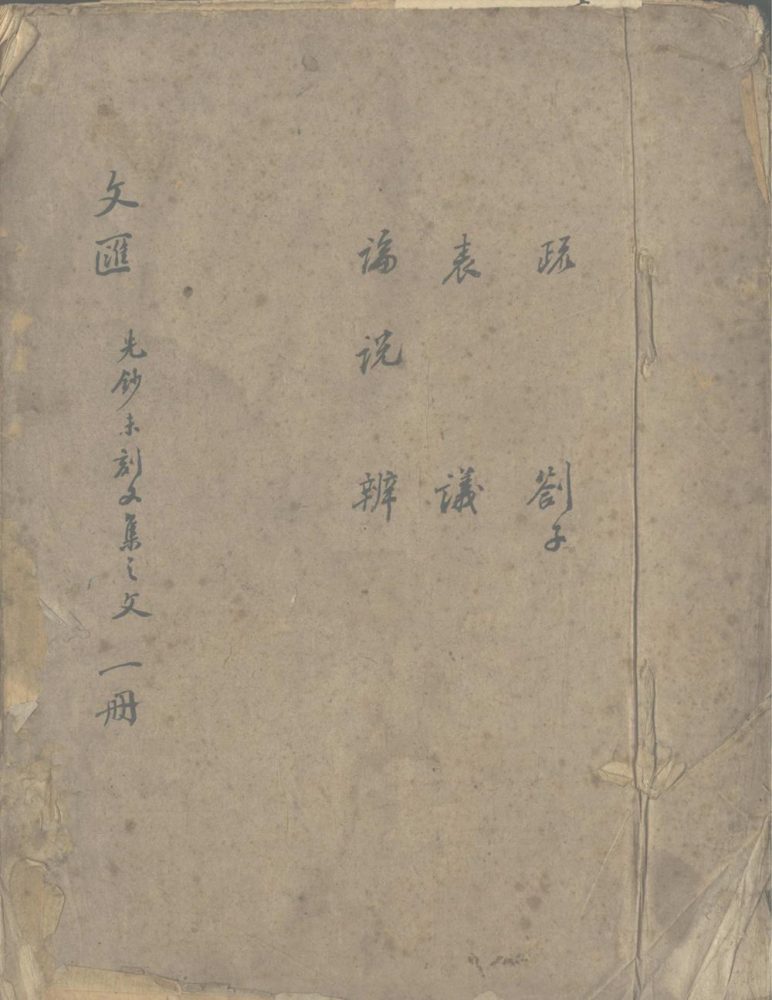 疏 劄子
表 議
論 説 辨
文匯 先鈔未刻文集之文 一冊